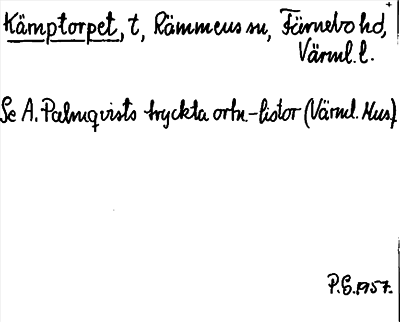 Kämptorpet, t, Rämmens sn, Färnebo hd,
Värml. l.
Se A. Palmqvists tryckta ortn-listor (Värml. Mus)
P.G. 1957.